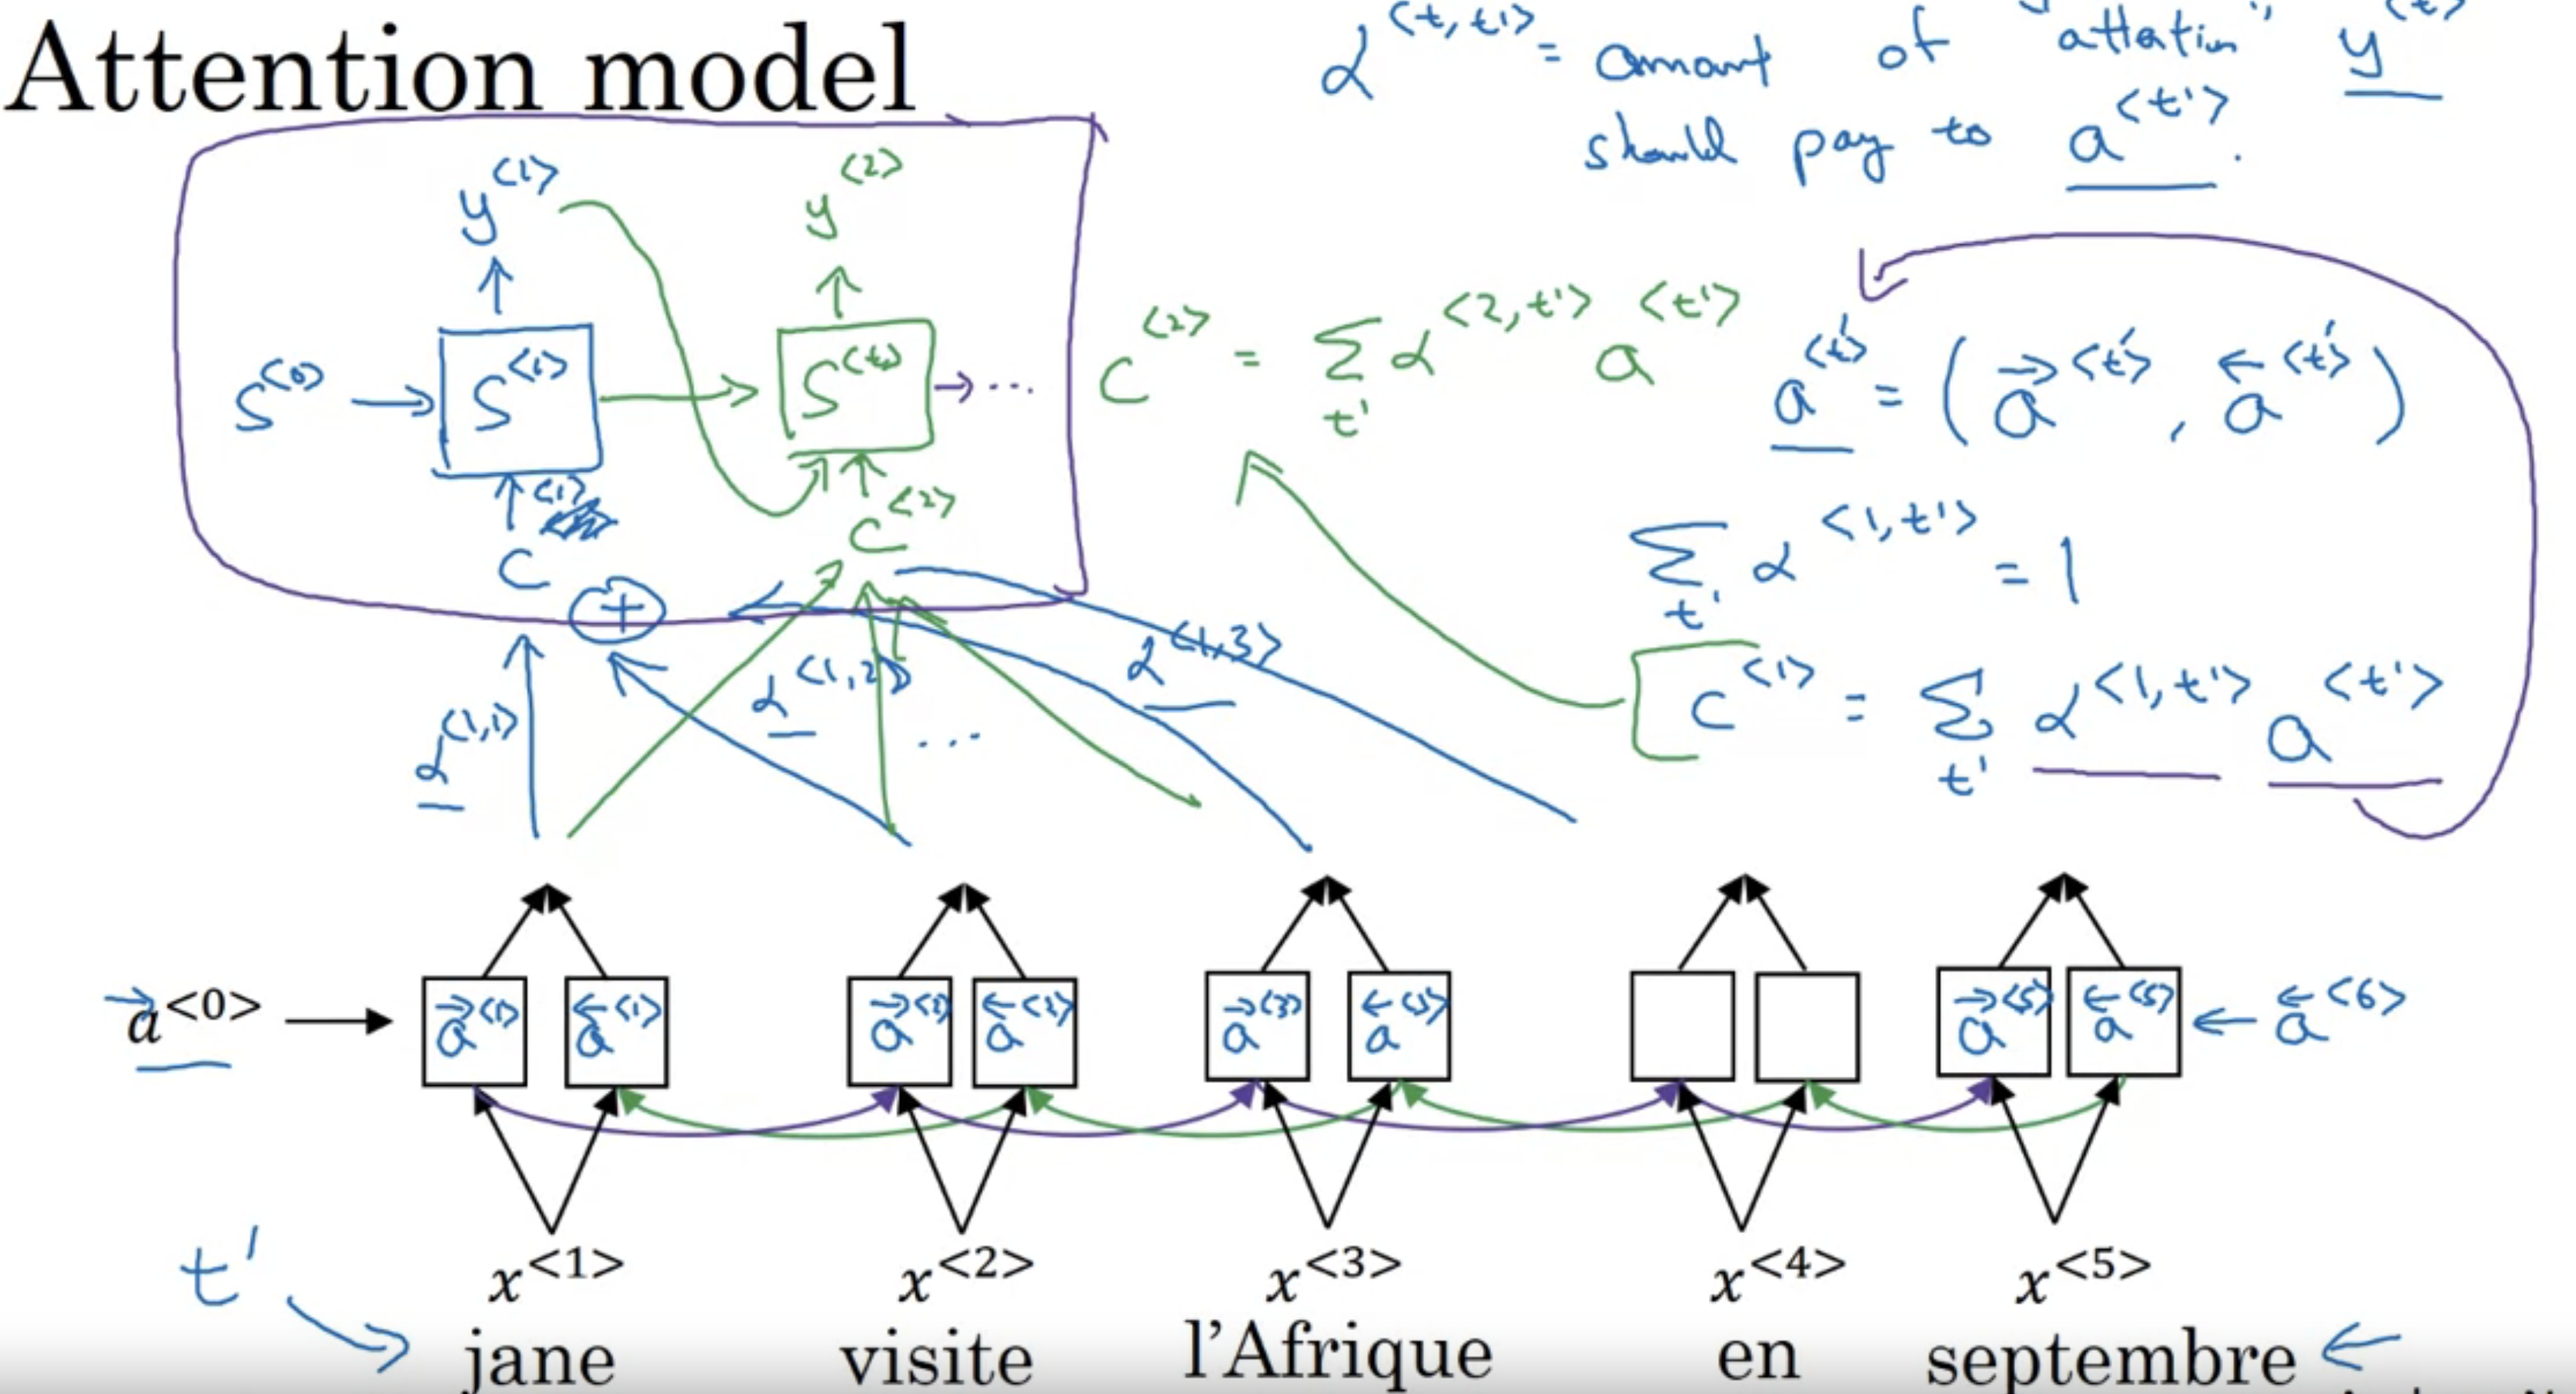 Attention model
α^{<t,t'>} = amount of "attention" y^{<t>}
should pay to a^{<t'>}.
y^{<1>} y^{<2>}
S^{<0>} → S^{<1>} → S^{<t>} → ...
C^{<2>} = Σ_{t'} α^{<2,t'>} a^{<t'>}
a^{<t'>} = (→a^{<t'>}, ←a^{<t'>})
C^{<1>} C^{<2>}
+
Σ_{t'} α^{<1,t'>} = 1
α^{<1,1>} α^{<1,2>} ... α^{<1,3>}
C^{<1>} = Σ_{t'} α^{<1,t'>} a^{<t'>}
→a^{<0>} → →a^{<1>} ←a^{<1>} →a^{<2>} ←a^{<2>} →a^{<3>} ←a^{<3>} →a^{<5>} ←a^{<5>} ← ←a^{<6>}
t'
x^{<1>} x^{<2>} x^{<3>} x^{<4>} x^{<5>}
jane visite l'Afrique en septembre ←